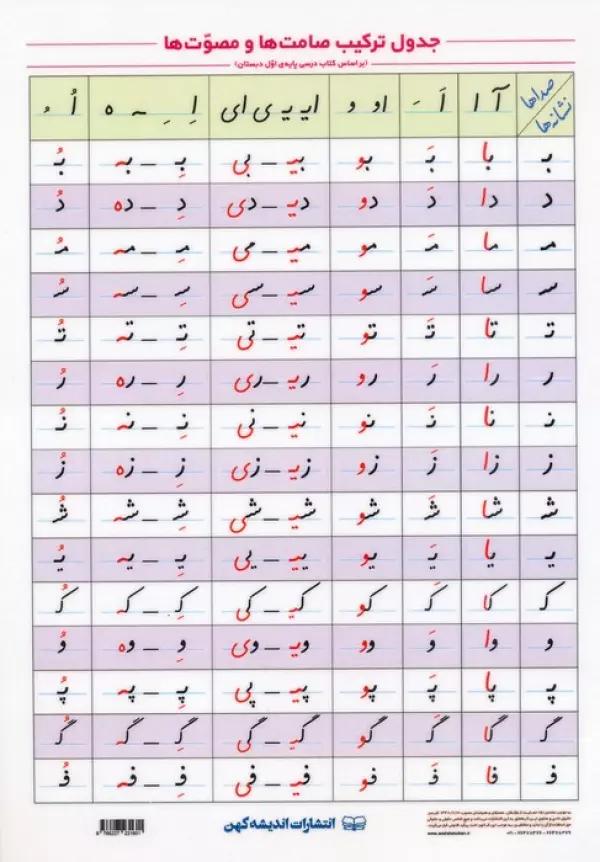 جدول ترکیب صامت‌ها و مصوّت‌ها
(بر اساس کتاب درسی پایه‌ی اوّل دبستان)
صداها نشانه‌ها آ ا اَ ـَ او و ایـ یـ ی ای اِ ـِ ـه ه اُ ـُ
بـ با بَـ بو بیـ ـ بی بِـ ـ بـه بُـ
د دا دَ دو دیـ ـ دی دِ ـ ده دُ
مـ ما مَـ مو میـ ـ می مِـ ـ مـه مُـ
سـ سا سَـ سو سیـ ـ سی سِـ ـ سـه سُـ
تـ تا تَـ تو تیـ ـ تی تِـ ـ تـه تُـ
ر را رَ رو ریـ ـ ری رِ ـ ره رُ
نـ نا نَـ نو نیـ ـ نی نِـ ـ نـه نُـ
ز زا زَ زو زیـ ـ زی زِ ـ زه زُ
شـ شا شَـ شو شیـ ـ شی شِـ ـ شـه شُـ
یـ یا یَـ یو ییـ ـ یی یِـ ـ یـه یُـ
کـ کا کَـ کو کیـ ـ کی کِـ ـ کـه کُـ
و وا وَ وو ویـ ـ وی وِ ـ وه وُ
پـ پا پَـ پو پیـ ـ پی پِـ ـ پـه پُـ
گـ گا گَـ گو گیـ ـ گی گِـ ـ گـه گُـ
فـ فا فَـ فو فیـ ـ فی فِـ ـ فـه فُـ
انتشارات اندیشه کهن